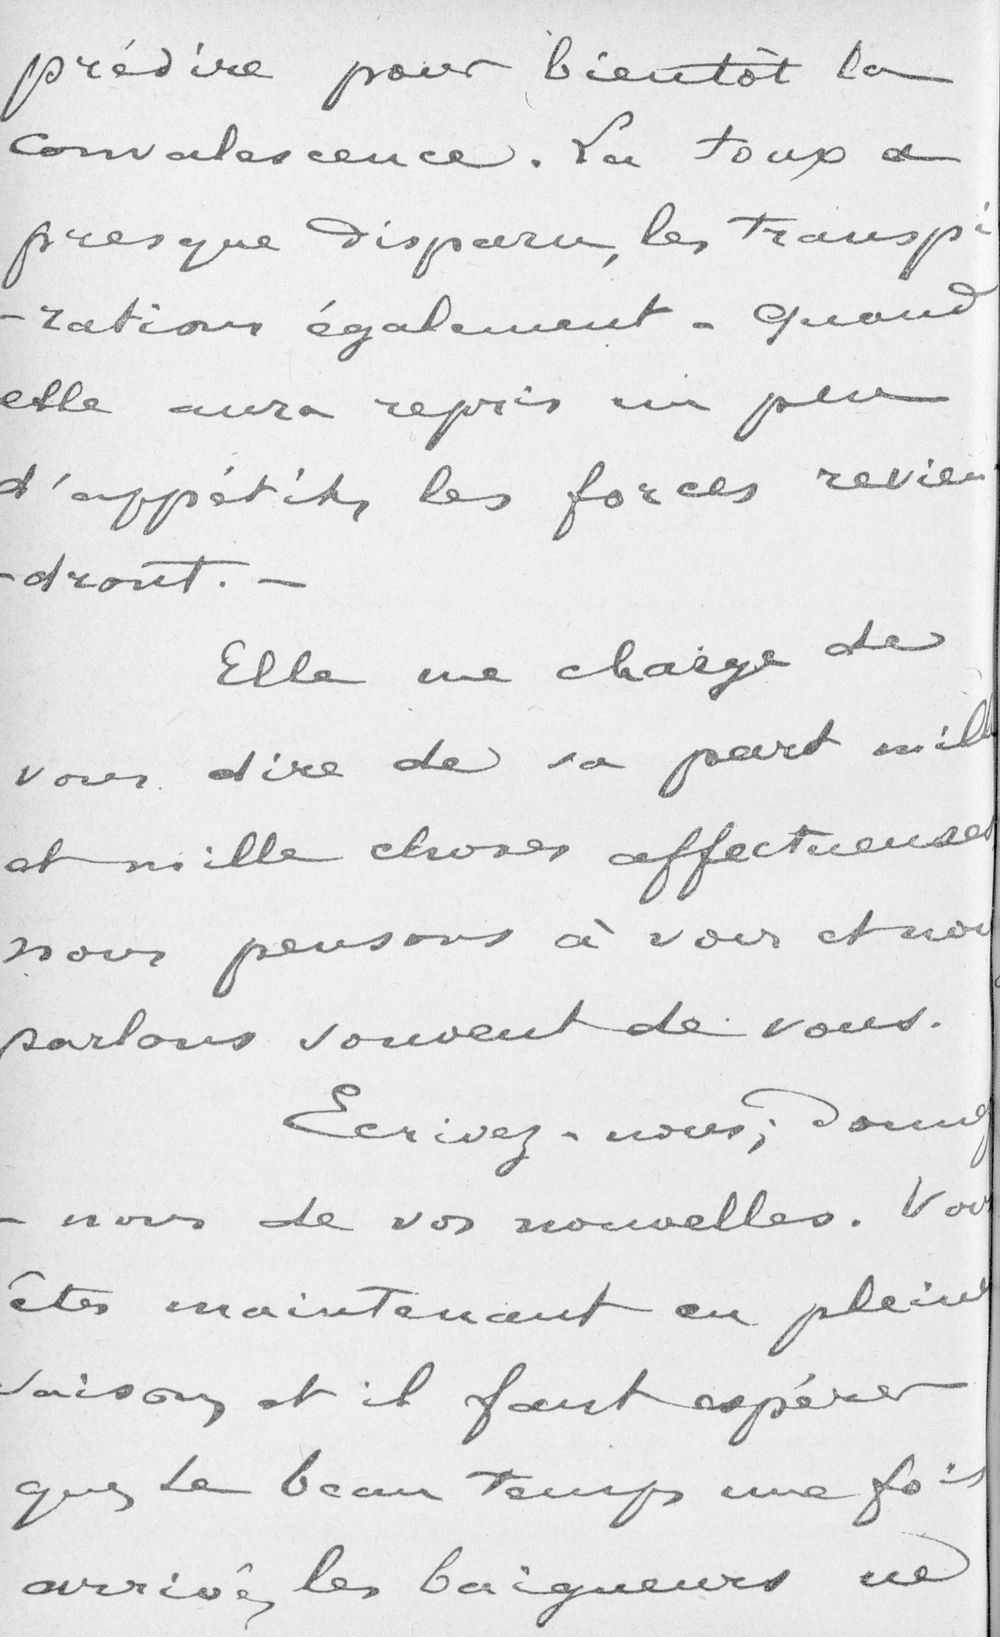 prédire pour bientôt la
convalescence. La toux a
presque disparu, les transpi
-rations également - Quand
elle aura repris un peu
d'appétit, les forces revien
-dront. -
Elle me charge de
vous dire de sa part mill
et mille choses affectueuses
nous pensons à vous et nou
parlons souvent de vous.
Ecrivez-nous; donnez
- nous de vos nouvelles. Vous
êtes maintenant en pleine
saison, et il faut espérer
que, le beau temps une fois
arrivé, les baigneurs ne